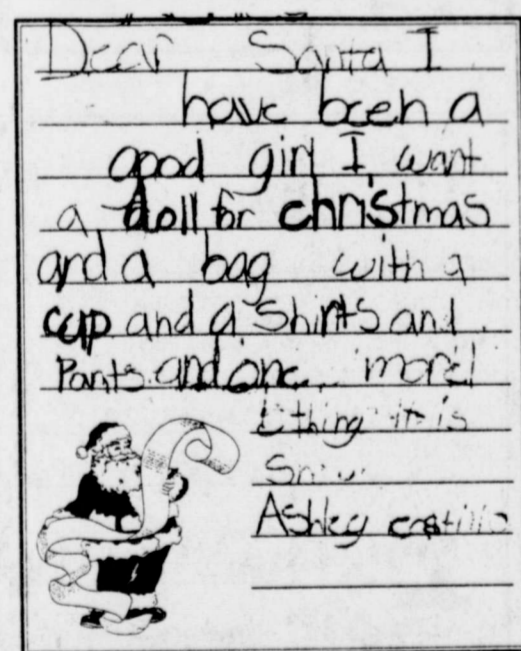 Dear Santa I
have been a
good girl I want
a doll for christmas
and a bag with a
cup and a shirts and
Pants and one more
thing it is
Snow
Ashley castillo